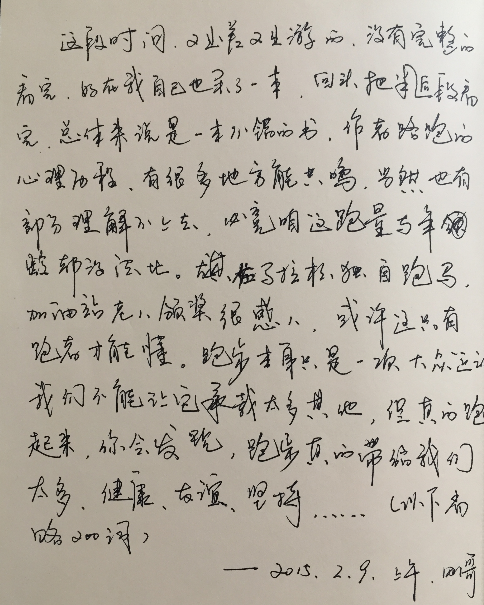 这段时间，又出差又出游的，没有完整的
看完，好在我自己也买了一本，回头把后段看
完，总体来说是一本不错的书，作者路跑的
心理历程，有很多地方能共鸣，当然也有
部分理解不上去，必竟咱这跑量与年
龄都没法比。马拉松独自跑马，
加油站老人颁奖很感人，或许这只有
跑者才能懂。跑步本身只是一项大众运动
我们不能让它承载太多其他，但真的跑
起来，你会发现，跑步真的带给我们
太多，健康、友谊、坚持……（以下省
略200词）
——2015.2.9.上午.